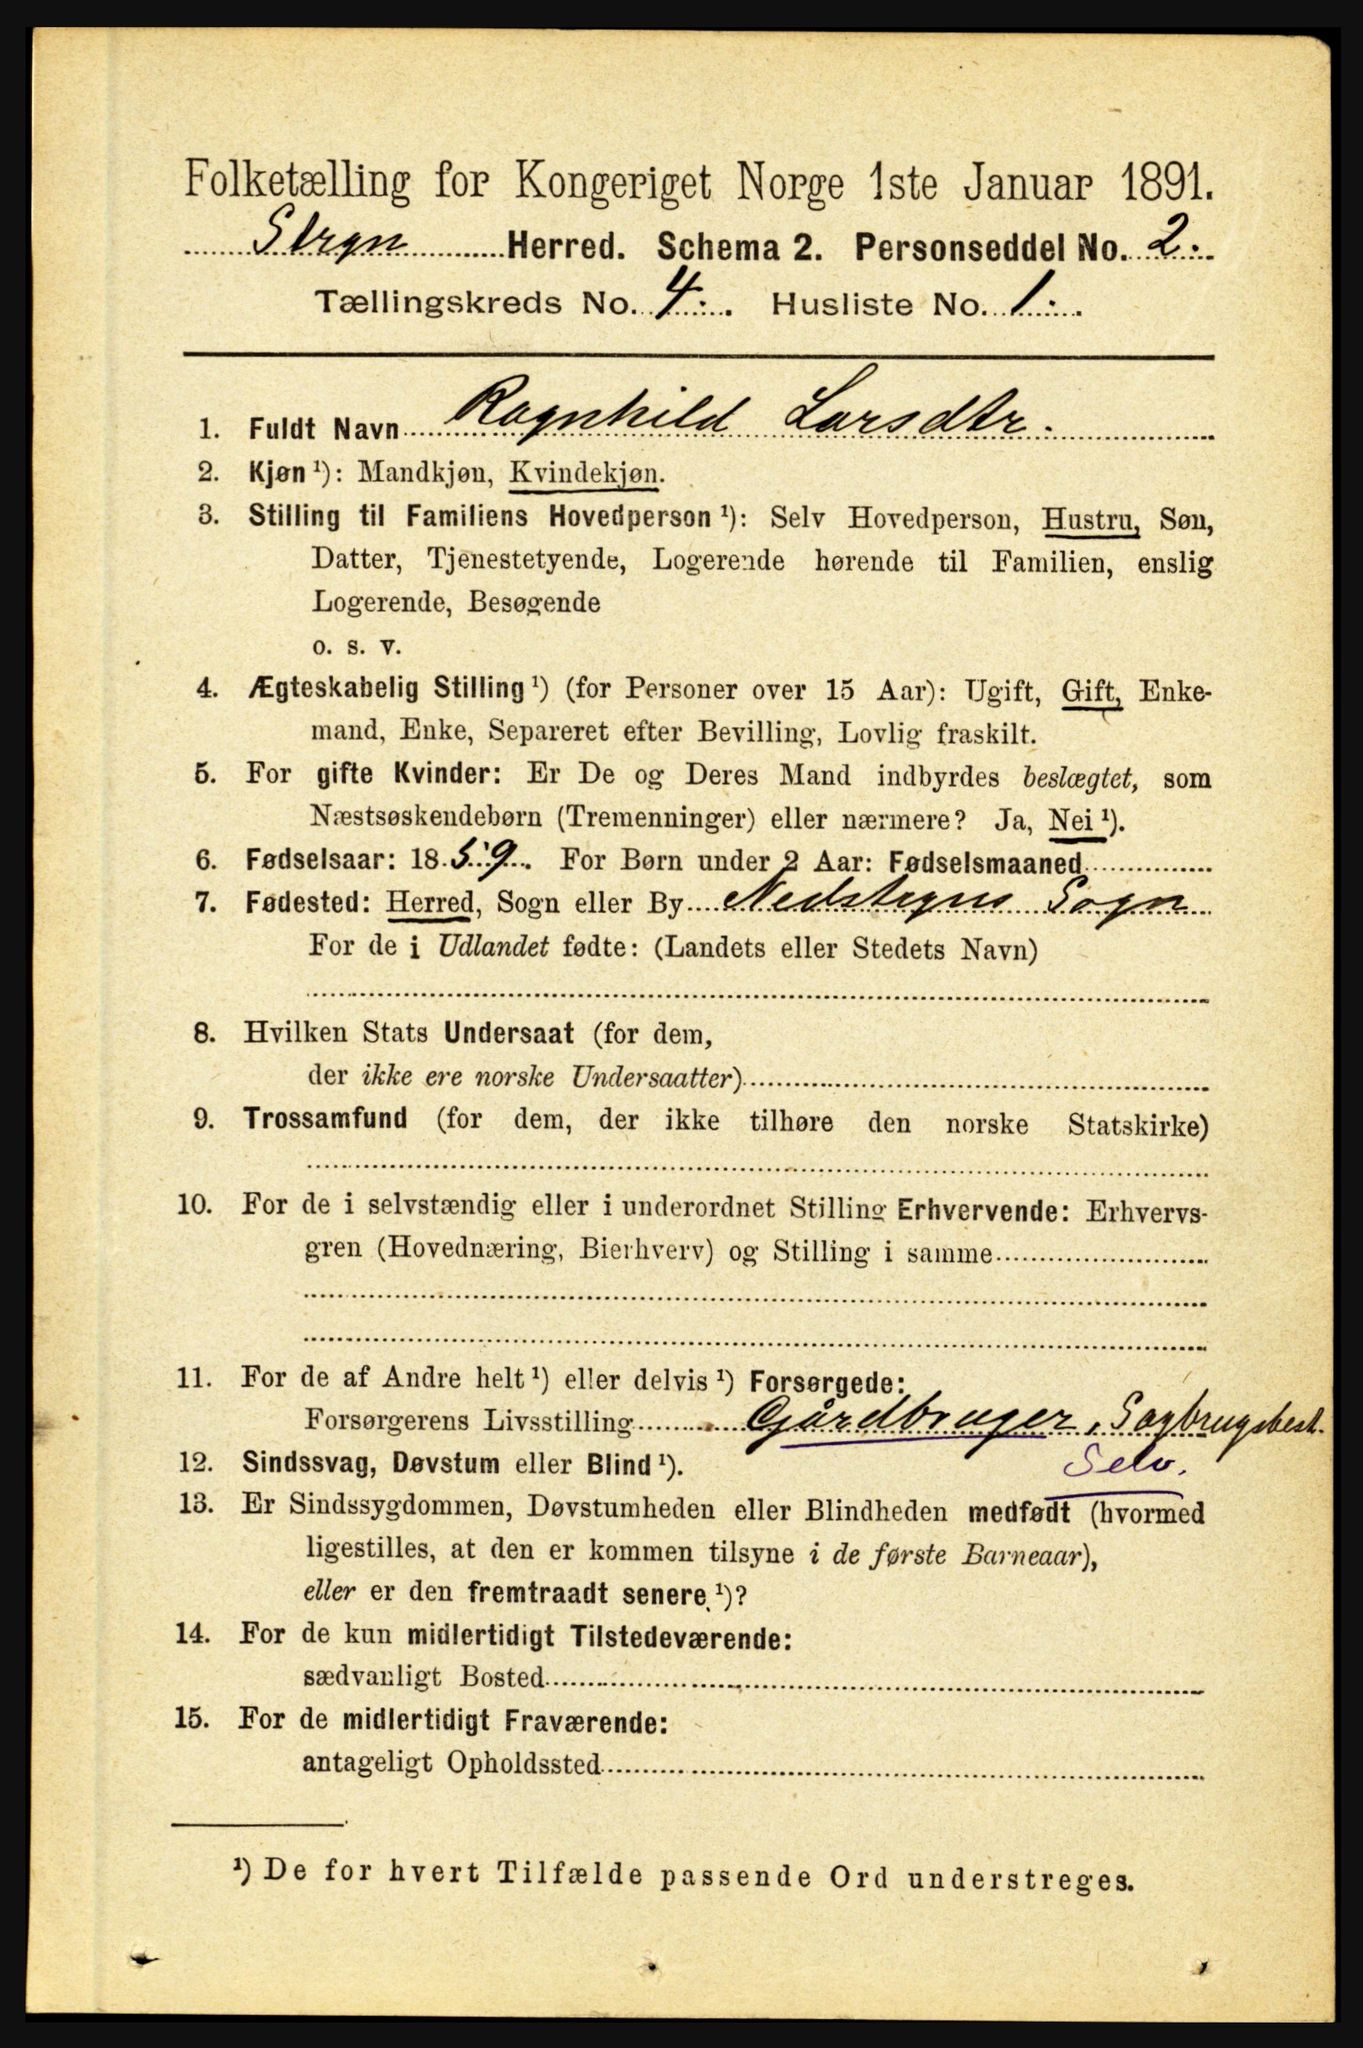 Folketælling for Kongeriget Norge 1ste Januar 1891.
Stryn Herred. Schema 2. Personseddel No. 2.
Tællingskreds No. 4. Husliste No. 1.
1. Fuldt Navn Ragnhild Larsdtr.
2. Kjøn ¹): Mandkjøn, Kvindekjøn.
3. Stilling til Familiens Hovedperson ¹): Selv Hovedperson, Hustru, Søn,
Datter, Tjenestetyende, Logerende hørende til Familien, enslig
Logerende, Besøgende
o. s. v.
4. Ægteskabelig Stilling ¹) (for Personer over 15 Aar): Ugift, Gift, Enke-
mand, Enke, Separeret efter Bevilling, Lovlig fraskilt.
5. For gifte Kvinder: Er De og Deres Mand indbyrdes beslægtet, som
Næstsøskendebørn (Tremenninger) eller nærmere? Ja, Nei ¹).
6. Fødselsaar: 1859. For Børn under 2 Aar: Fødselsmaaned
7. Fødested: Herred, Sogn eller By Nedstryns Sogn
For de i Udlandet fødte: (Landets eller Stedets Navn)
8. Hvilken Stats Undersaat (for dem,
der ikke ere norske Undersaatter)
9. Trossamfund (for dem, der ikke tilhøre den norske Statskirke)
10. For de i selvstændig eller i underordnet Stilling Erhvervende: Erhvervs-
gren (Hovednæring, Bierhverv) og Stilling i samme
11. For de af Andre helt ¹) eller delvis ¹) Forsørgede:
Forsørgerens Livsstilling Gårdbruger, Sagbrugsbest.
12. Sindssvag, Døvstum eller Blind ¹). Selv.
13. Er Sindssygdommen, Døvstumheden eller Blindheden medfødt (hvormed
ligestilles, at den er kommen tilsyne i de første Barneaar),
eller er den fremtraadt senere ¹)?
14. For de kun midlertidigt Tilstedeværende:
sædvanligt Bosted
15. For de midlertidigt Fraværende:
antageligt Opholdssted
¹) De for hvert Tilfælde passende Ord understreges.